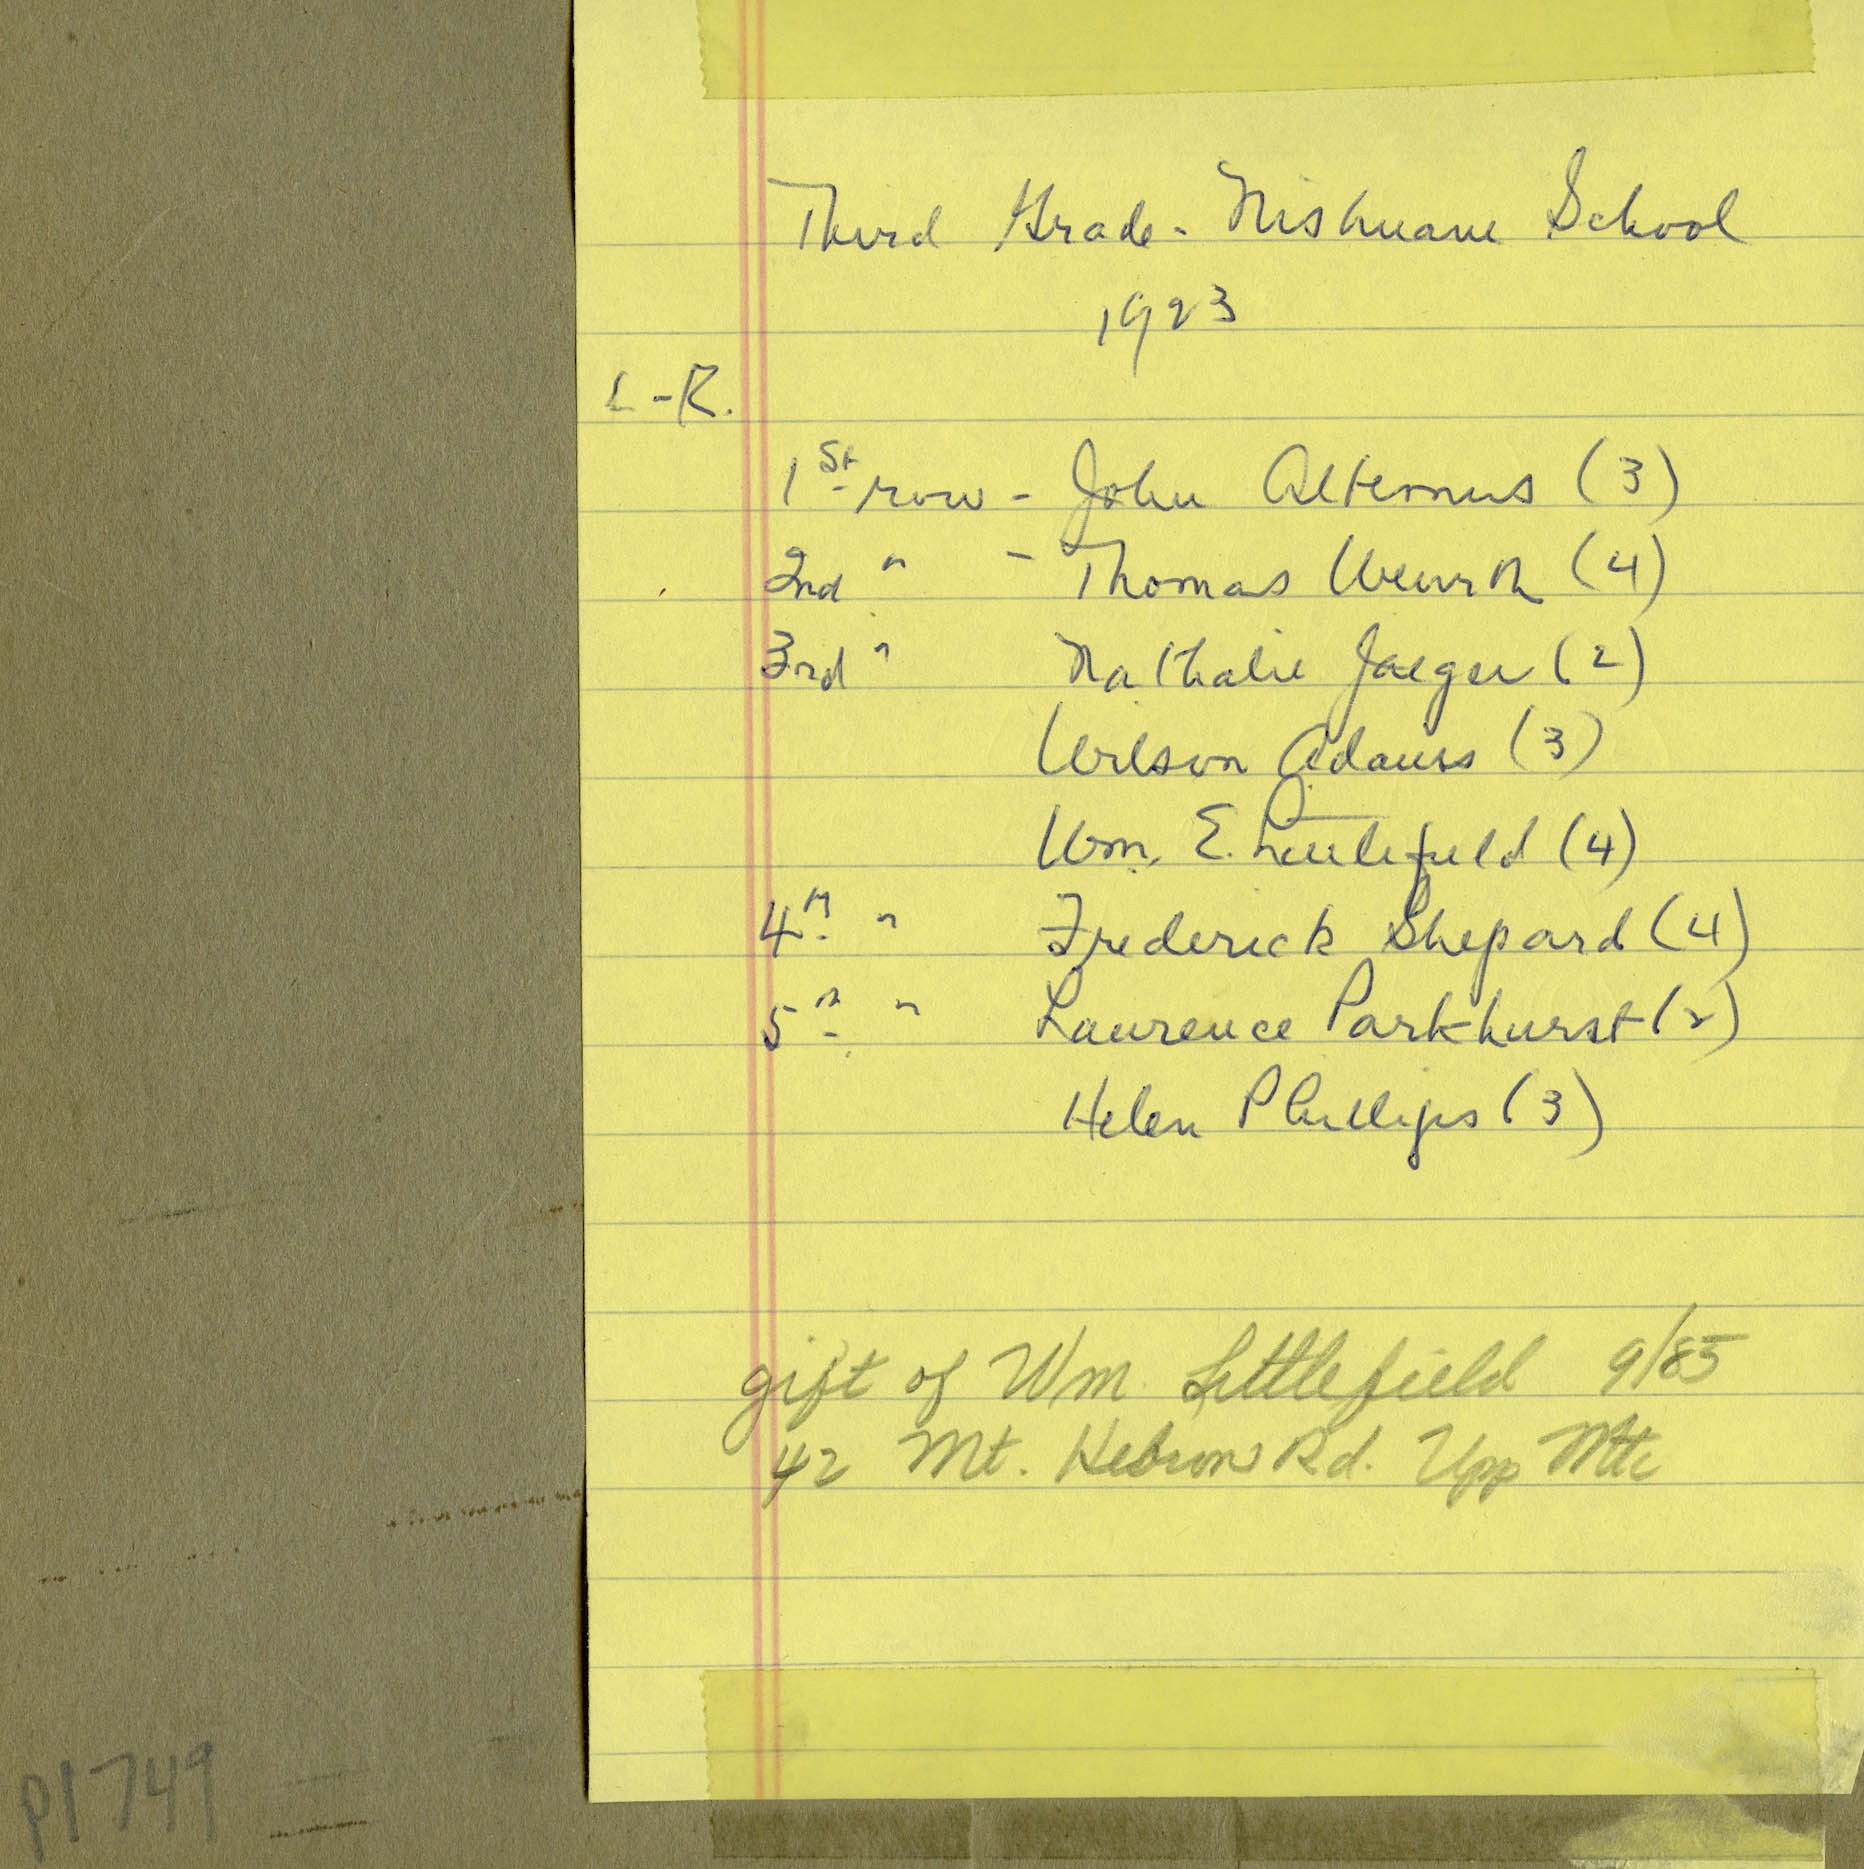 Third Grade - Nishuane School
1923
L-R.
1st row - John Altemus (3)
2nd " - Thomas (4)
3rd " Nathalie Jaeger (2)
Wilson Adams (3)
Wm. E. Littlefield (4)
4th " Frederick Shepard (4)
5th " Laurence Parkhurst (2)
Helen Phillips (3)
gift of Wm. Littlefield 9/85
42 Mt. Hebron Rd. Upp Mtc
P1749